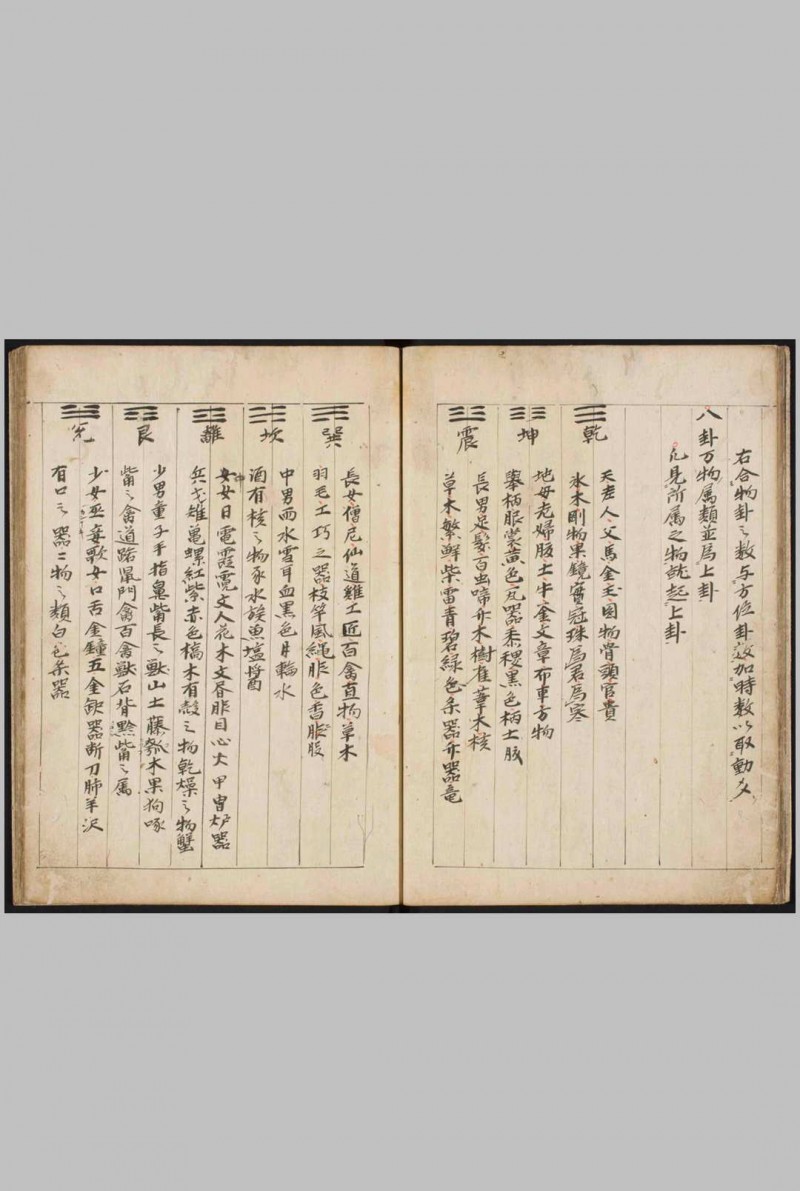 右合物卦之数与方位卦数加時数以取動爻
八卦万物属類並爲上卦
凡見所属之物皆起上卦
乾
天老人父馬金玉圓物骨頭官貴
氷木剛物果鏡寳冠珠爲君爲寒
坤
地母老婦腹土牛釜文章布車方物
轝柄服裳黄色瓦器黍稷黒色柄土
震
長男足髮百虫啼竹木樹萑葦木核
草木繁鮮柴雷青碧緑色木器竹器竜
巽
長女僧尼仙道雞工匠百禽直物草木
羽毛工巧之器枝竿風繩色香股
坎
中男雨水雪耳血黒色月輪水
酒有核之物豕水族魚塩醤
離
中女日電霞霓文人花木文目心火甲冑炉器
兵戈雉亀螺紅紫赤色槁木有殻之物乾燥之物蟹
艮
少男童子手指鼻觜長之獣山土藤瓠木果狗啄
觜之禽道路鼠門禽百禽獣石背黔觜之属
兌
少女巫妾歌女口舌金鐘五金缺器断刀肺羊沢
有口之器二物之類白色